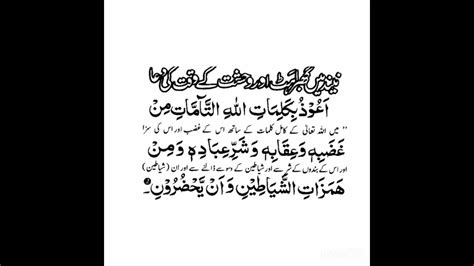 نیند میں گھبراہٹ اور وحشت کے وقت کی دعا
اَعُوْذُ بِكَلِمَاتِ اللهِ التَّآمَّاتِ مِنْ
"میں اللہ تعالیٰ کے کامل کلمات کے ساتھ اس کے غضب اور اس کی سزا
غَضَبِهٖ وَعِقَابِهٖ وَشَرِّ عِبَادِهٖ وَمِنْ
اور اس کے بندوں کے شر سے اور شیاطین کے وسوسے ڈالنے سے اور ان (شیاطین)
هَمَزَاتِ الشَّيَاطِيْنِ وَاَنْ يَّحْضُرُوْنِ۔